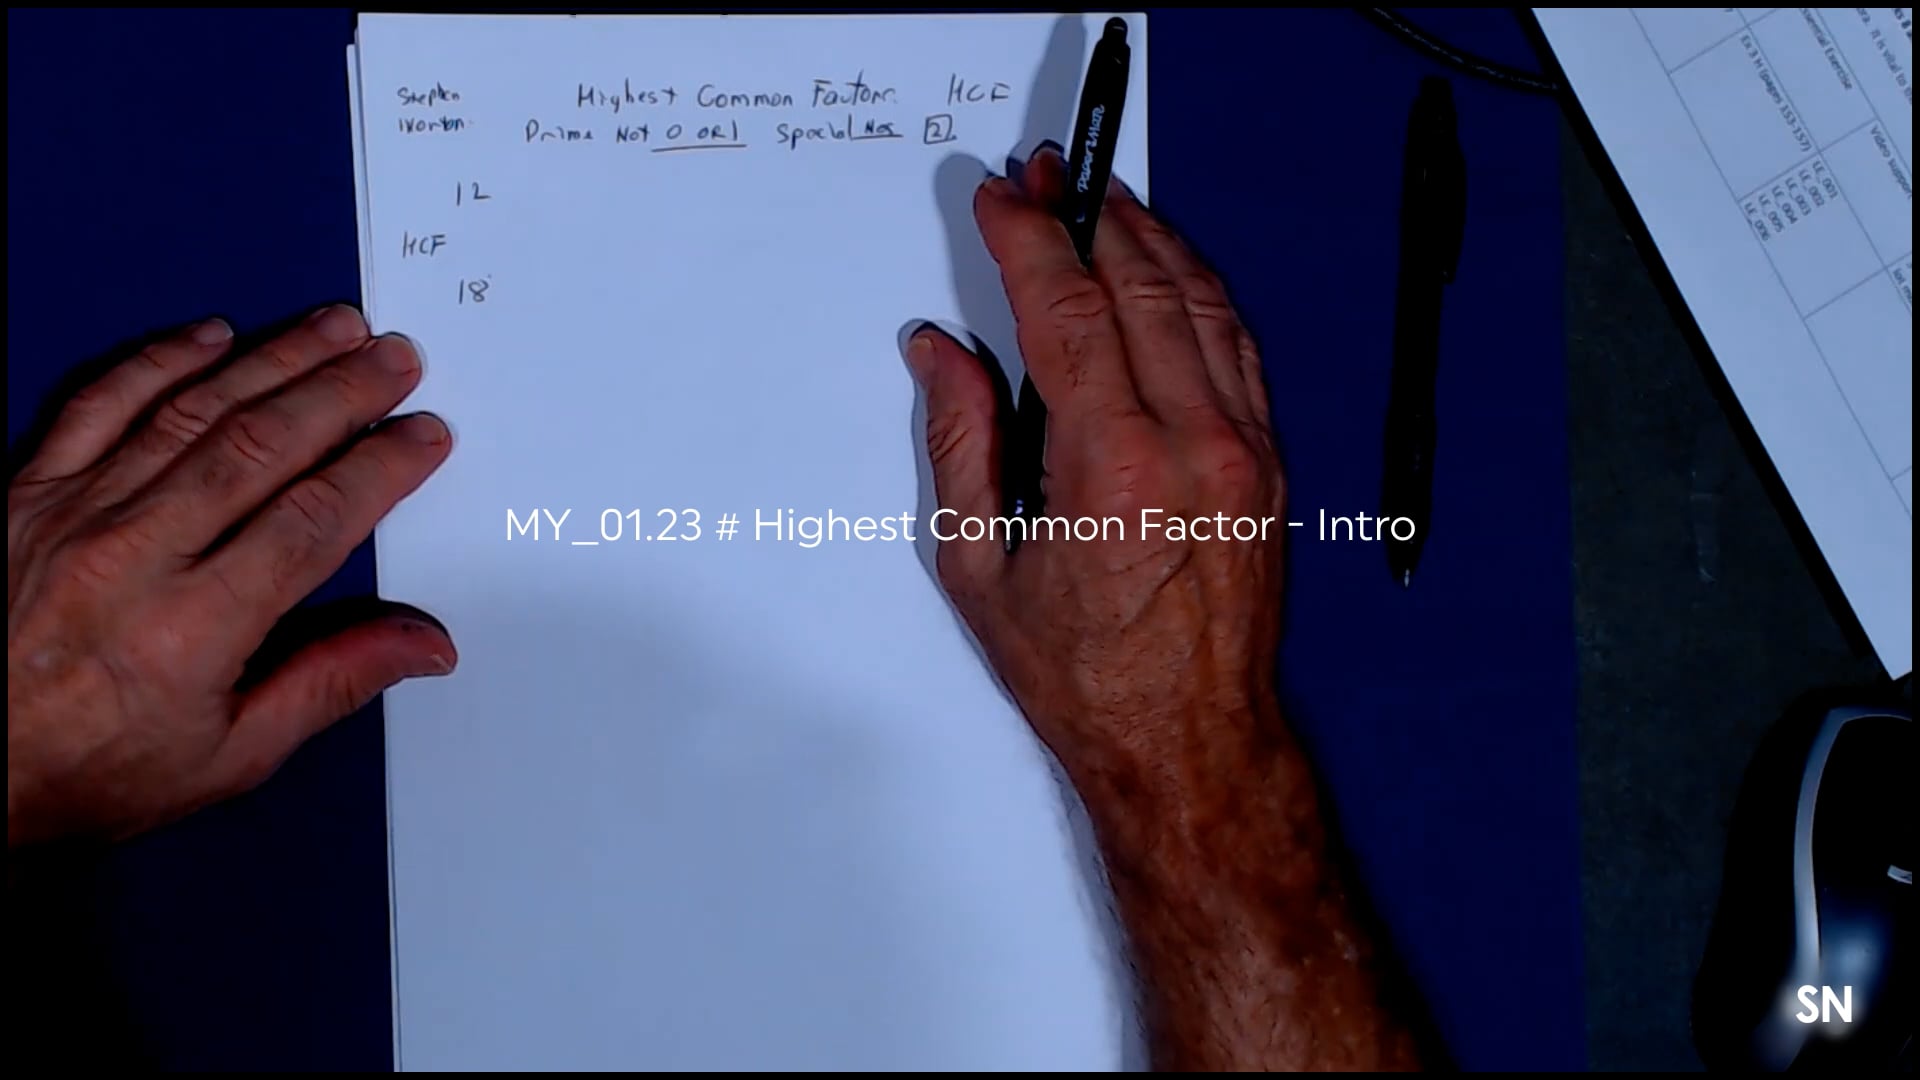 Stephen
Norton
Highest Common Factor HCF
Prime Not 0 OR 1 Special Nos 2
12
HCF
18
PaperMate
MY_01.23 # Highest Common Factor - Intro
Essential Exercise
Ex 3 H (pages 153-157)
Video support
LE_001
LE_002
LE_003
LE_004
LE_005
LE_006
SN